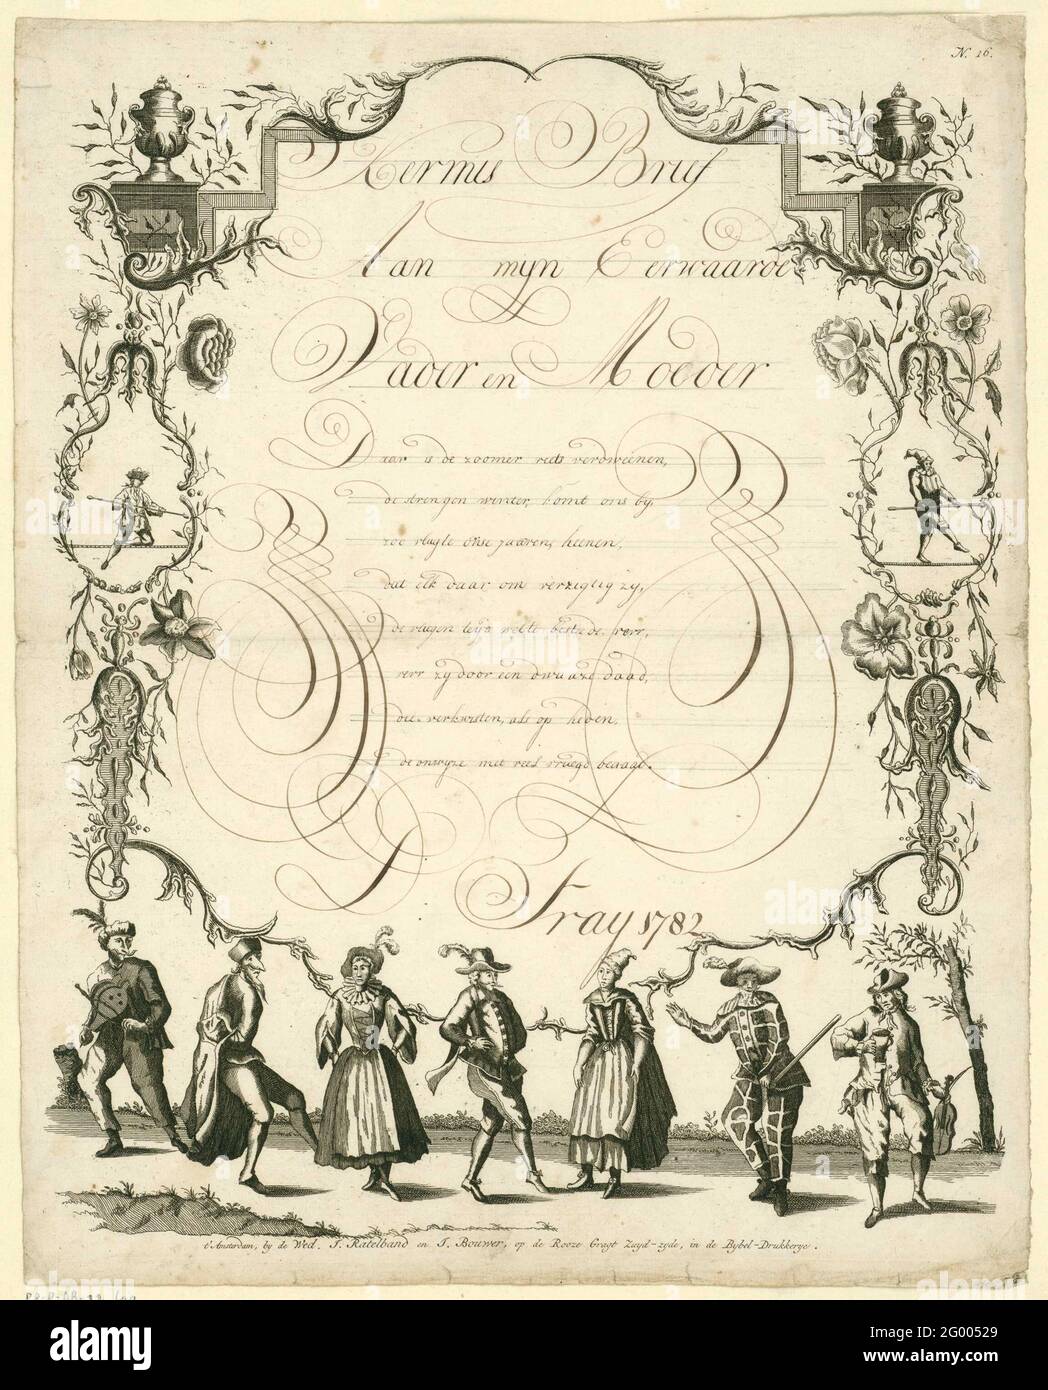 N. 16.
Kermis Brief
Aan mijn Eerwaarde
Vader en Moeder
Daar is de zoomer reets verdweenen,
de strengen winter, komt ons by,
zoo vlugte onse jaaren, heenen,
dat elk daar om verzigtig zy,
de dagen
zy door een dwaaze daad,
die verkwisten, als op heden,
de onwyze met veel vreugd
Fray 1782
t'Amsterdam, by de Wed. J. Ratelband en J. Bouwer, op de Rooze Gragt Zuyd-zyde, in de Bybel-Drukkerye.
alamy
alamy
Image ID: 2G00529
www.alamy.com